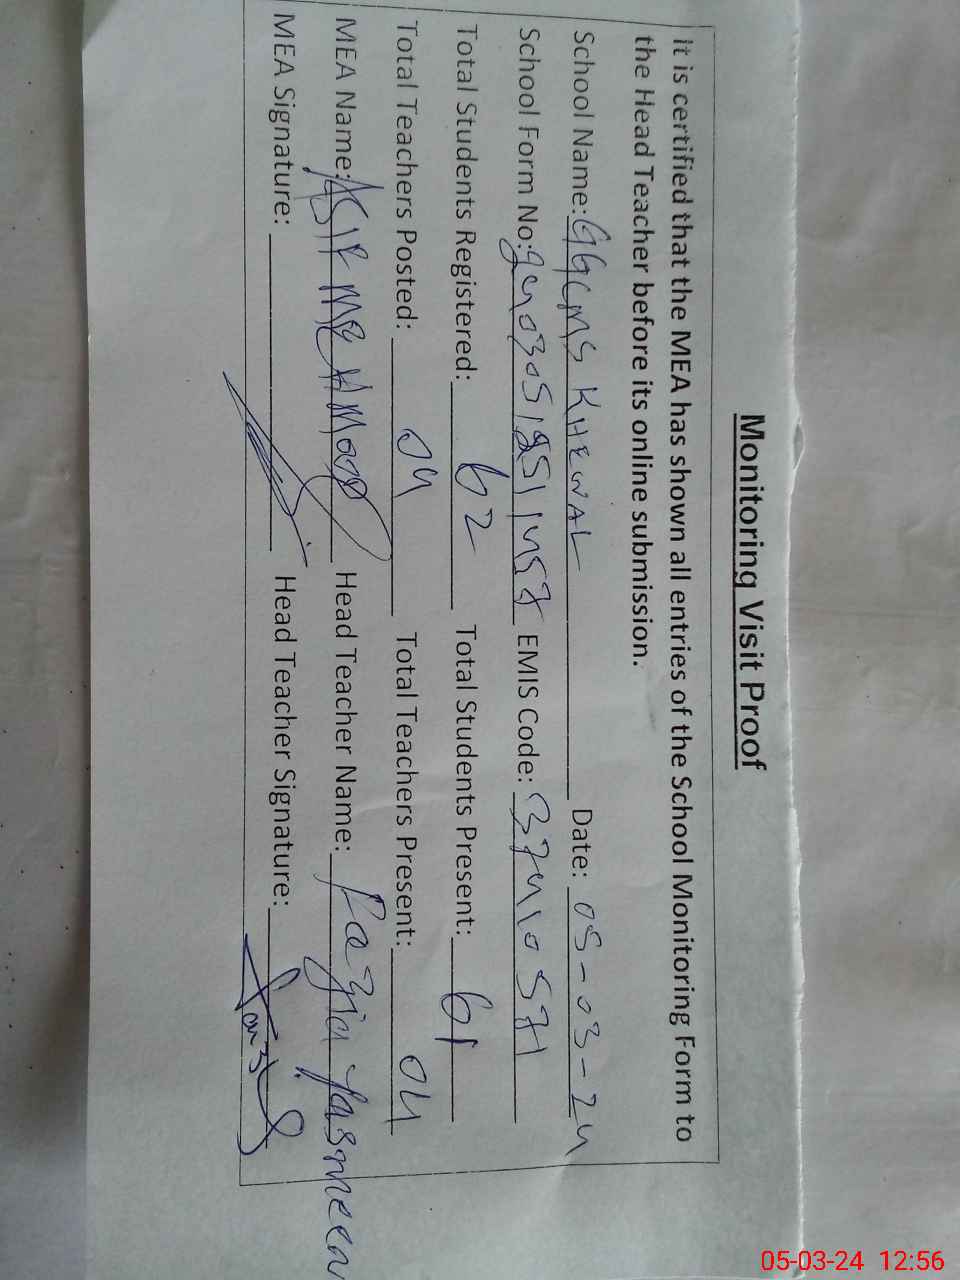 Monitoring Visit Proof
It is certified that the MEA has shown all entries of the School Monitoring Form to
the Head Teacher before its online submission.
School Name: GGCMS KHEWAL Date: 05-03-24
School Form No: EMIS Code: 37410571
Total Students Registered: 62 Total Students Present: 61
Total Teachers Posted: 04 Total Teachers Present: 04
MEA Name: ASIF MEHMOOD Head Teacher Name: Razia Yasmeen
MEA Signature: Head Teacher Signature:
05-03-24 12:56